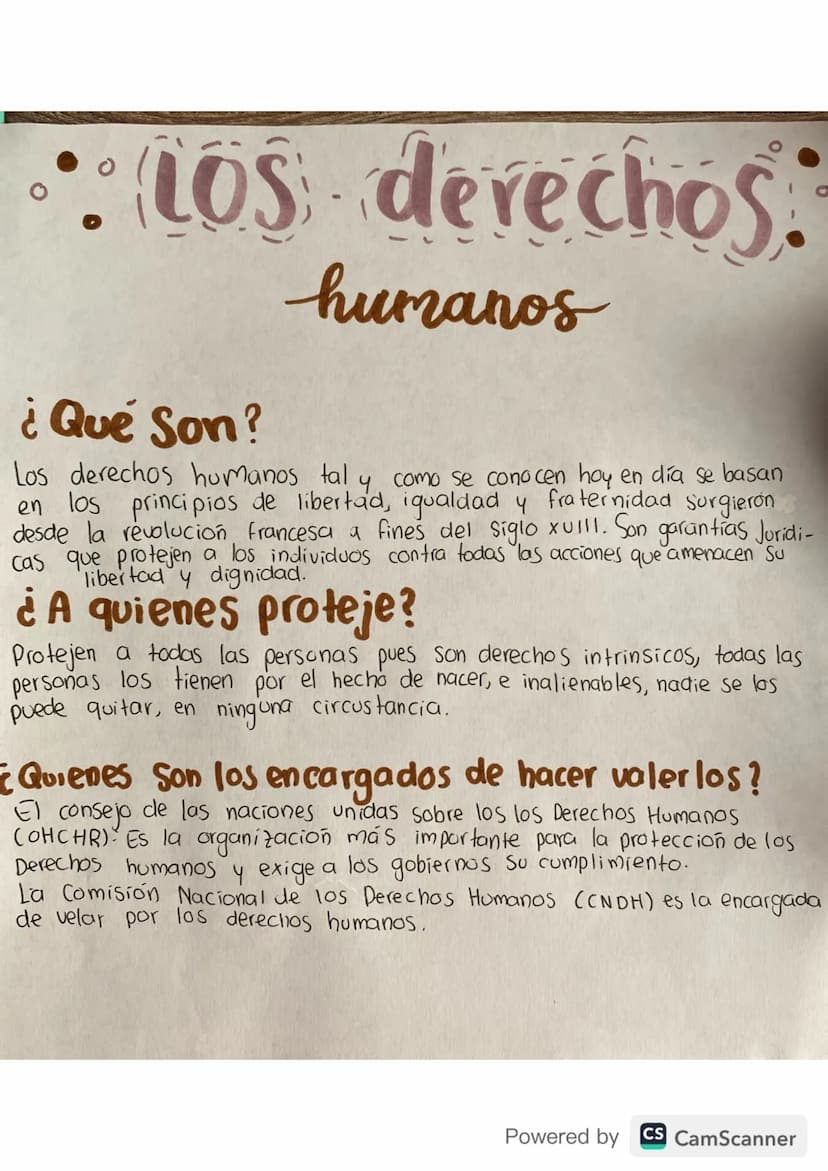 Los derechos
humanos
¿Qué Son?
Los derechos humanos tal y como se conocen hoy en día se basan
en los principios de libertad, igualdad y fraternidad surgieron
desde la revolución francesa a fines del siglo XVIII. Son garantías Jurídi-
cas que protejen a los individuos contra todas las acciones que amenacen su
libertad y dignidad.
¿A quienes proteje?
Protejen a todas las personas pues son derechos intrinsicos, todas las
personas los tienen por el hecho de nacer, e inalienables, nadie se los
puede quitar, en ninguna circustancia.
¿Quienes Son los encargados de hacer valerlos?
El consejo de las naciones unidas sobre los los Derechos Humanos
(OHCHR): Es la organización más importante para la protección de los
Derechos humanos y exige a los gobiernos su cumplimiento.
La Comisión Nacional de los Derechos Humanos (CNDH) es la encargada
de velar por los derechos humanos.
Powered by CS CamScanner